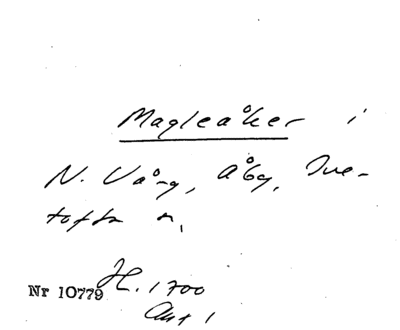 Magleåker i
N. Vång, Åby, Tve-
tofta s.
Nr 10779 H. 1700
Akt 1